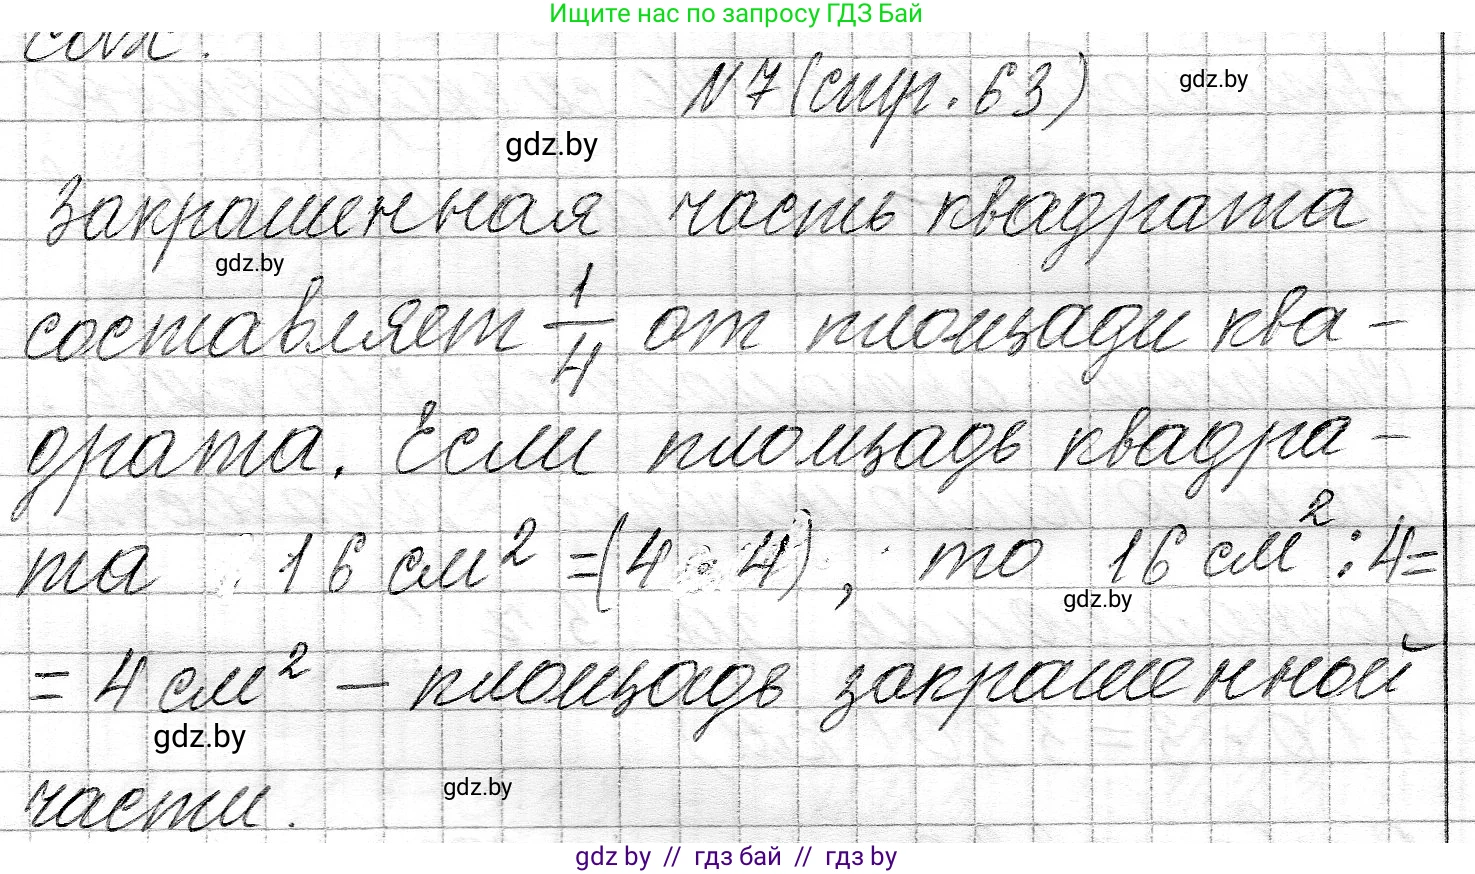 Ищите нас по запросу ГДЗ Бай
N 7 (стр. 63)
gdz.by
gdz.by
Закрашенная часть квадрата
gdz.by
составляет 1/4 от площади ква-
драта. Если площадь квадра-
та 16 см² =(4 · 4), то 16 см² : 4=
gdz.by
= 4 см² – площадь закрашенной
gdz.by
части.
gdz.by
gdz by // гдз бай // гдз by